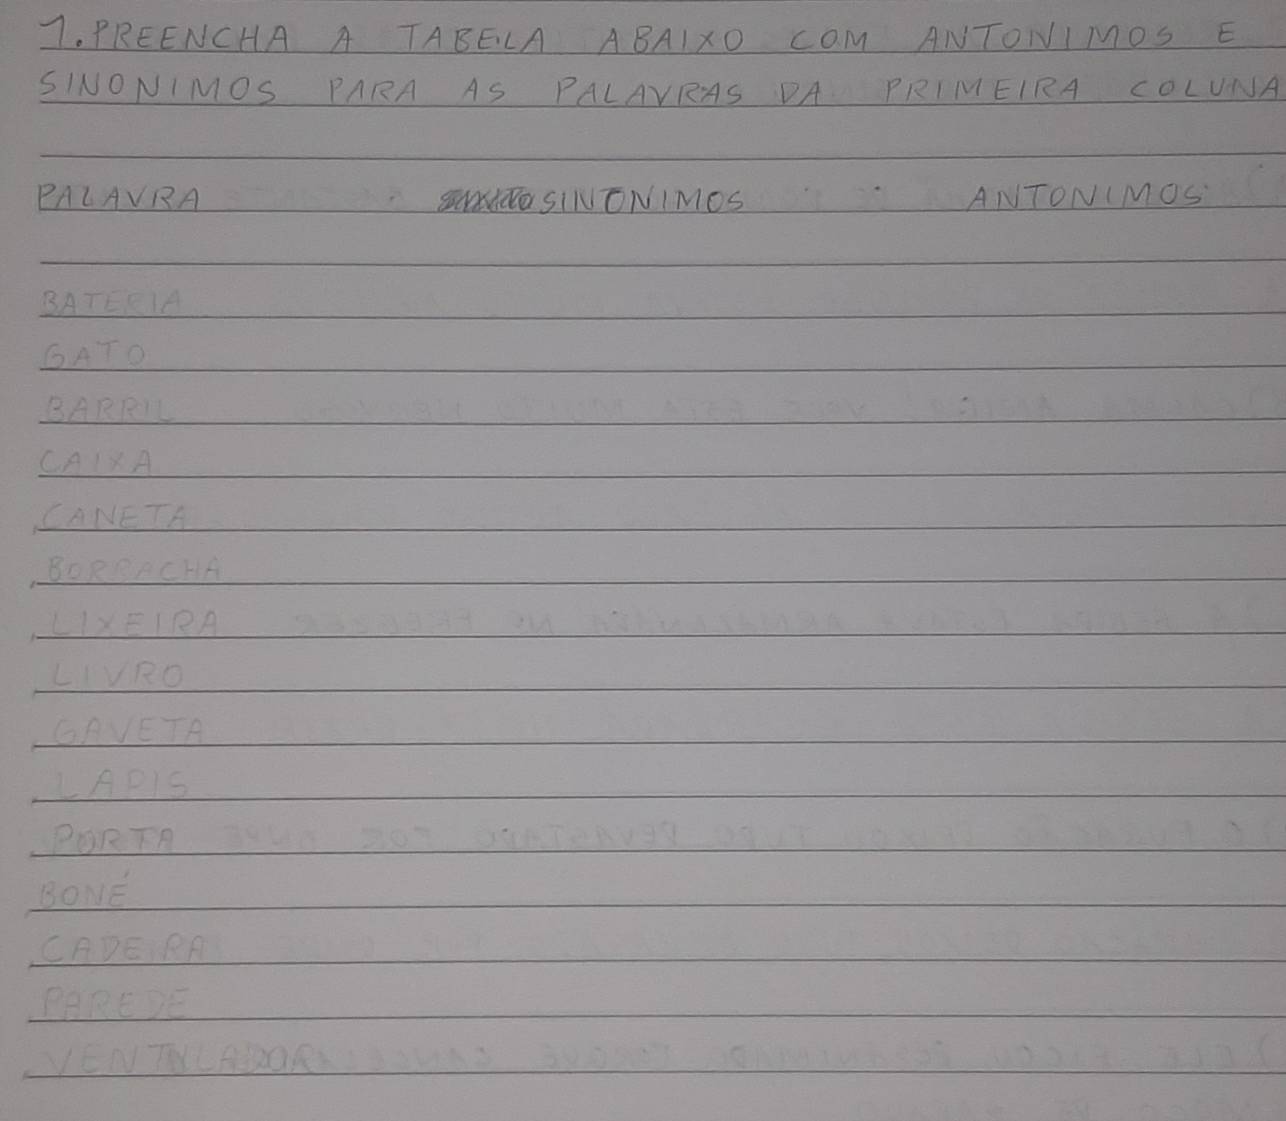 1. PREENCHA A TABELA ABAIXO COM ANTONIMOS E
SINONIMOS PARA AS PALAVRAS DA PRIMEIRA COLUNA
PALAVRA SINONIMOS ANTONIMOS
BATERIA
GATO
BARRIL
CAIXA
CANETA
BORRACHA
LIXEIRA
LIVRO
GAVETA
LAPIS
PORTA
BONÉ
CADEIRA
PAREDE
VENTILADOR